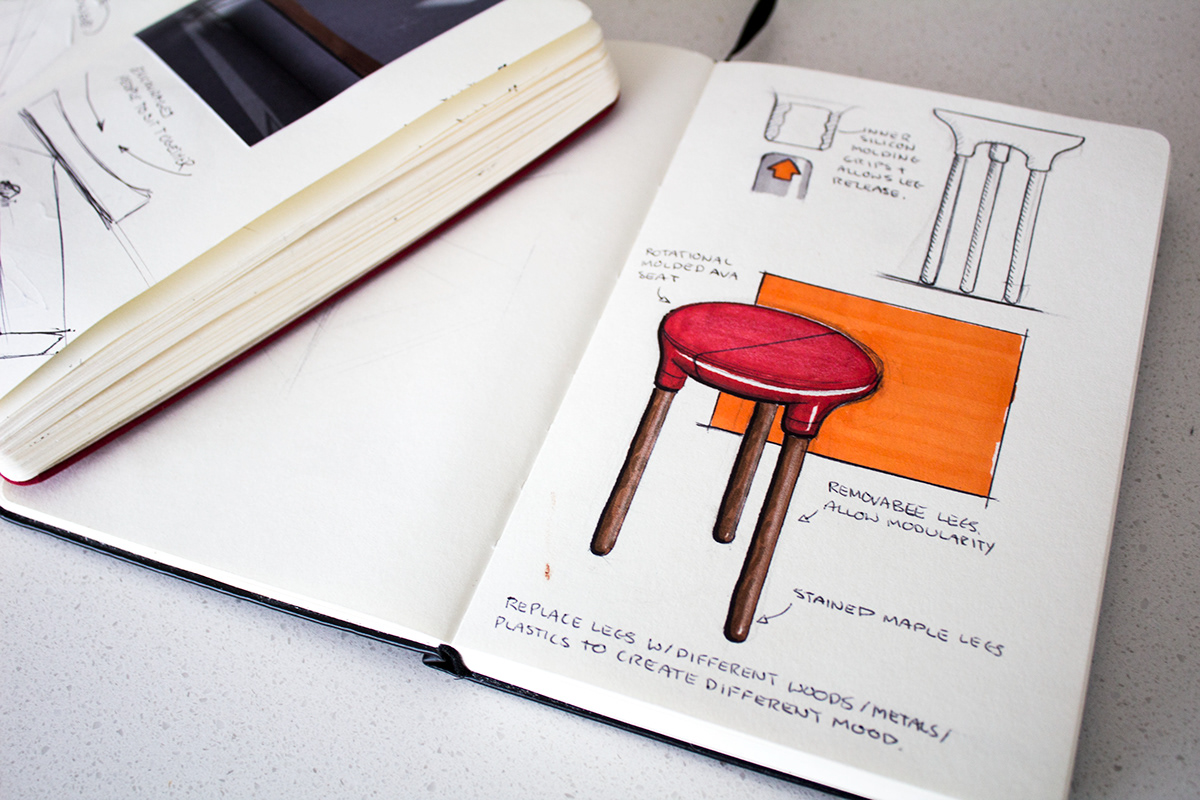 ENCOURAGES
PEOPLE TO SIT TOGETHER
INNER
SILICON
MOLDING
GRIPS +
ALLOWS LEG
RELEASE.
ROTATIONAL
MOLDED AVA
SEAT
REMOVABEE LEGS.
ALLOW MODULARITY
STAINED MAPLE LEGS
REPLACE LEGS W/DIFFERENT WOODS/METALS/
PLASTICS TO CREATE DIFFERENT MOOD.